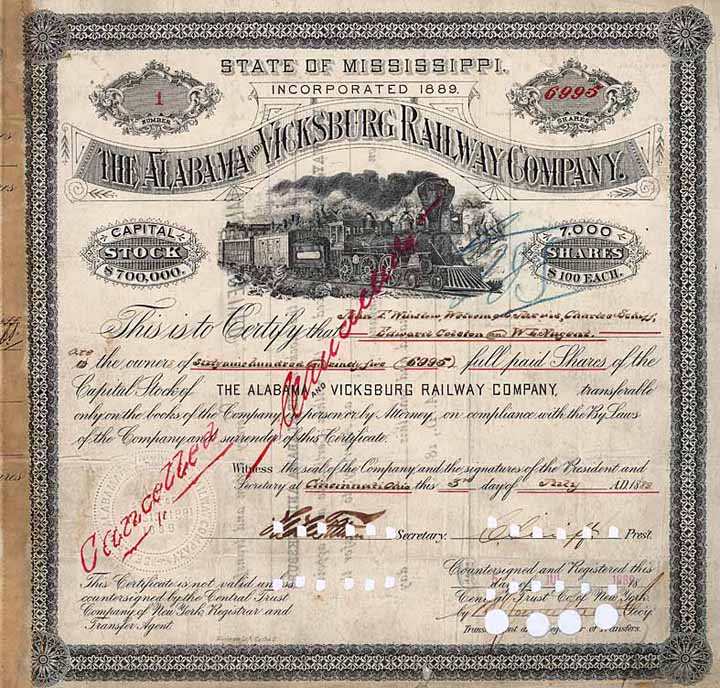 STATE OF MISSISSIPPI.
INCORPORATED 1889.
1
NUMBER
6995
SHARES
THE ALABAMA AND VICKSBURG RAILWAY COMPANY.
CAPITAL
STOCK
$700,000.
7,000
SHARES
$100 EACH.
This is to Certify that John F. Winslow, Charles Schiff,
Edward Colston and W. L. Nugent.
are the owners of Sixty nine hundred and ninety five (6995) full paid Shares of the
Capital Stock of THE ALABAMA AND VICKSBURG RAILWAY COMPANY, transferable
only on the books of the Company in person or by Attorney, on compliance with the By Laws
of the Company and surrender of this Certificate.
Cancelled
Witness the seal of the Company and the signatures of the President and
Secretary at Cincinnati Ohio this 3rd day of July A.D. 18
Secretary.
C Schiff Prest.
This Certificate is not valid unless
countersigned by the Central Trust
Company of New York, Registrar and
Transfer Agent.
Countersigned and Registered this
day of JUL 1889
Central Trust Co. of New York.
by Secy.
Transfer Agent and Registrar of Transfers.